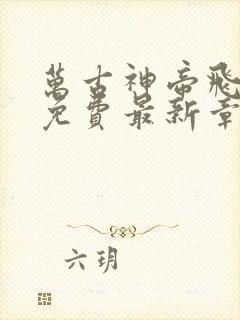 萬古神帝飛
免費最新章
六玥